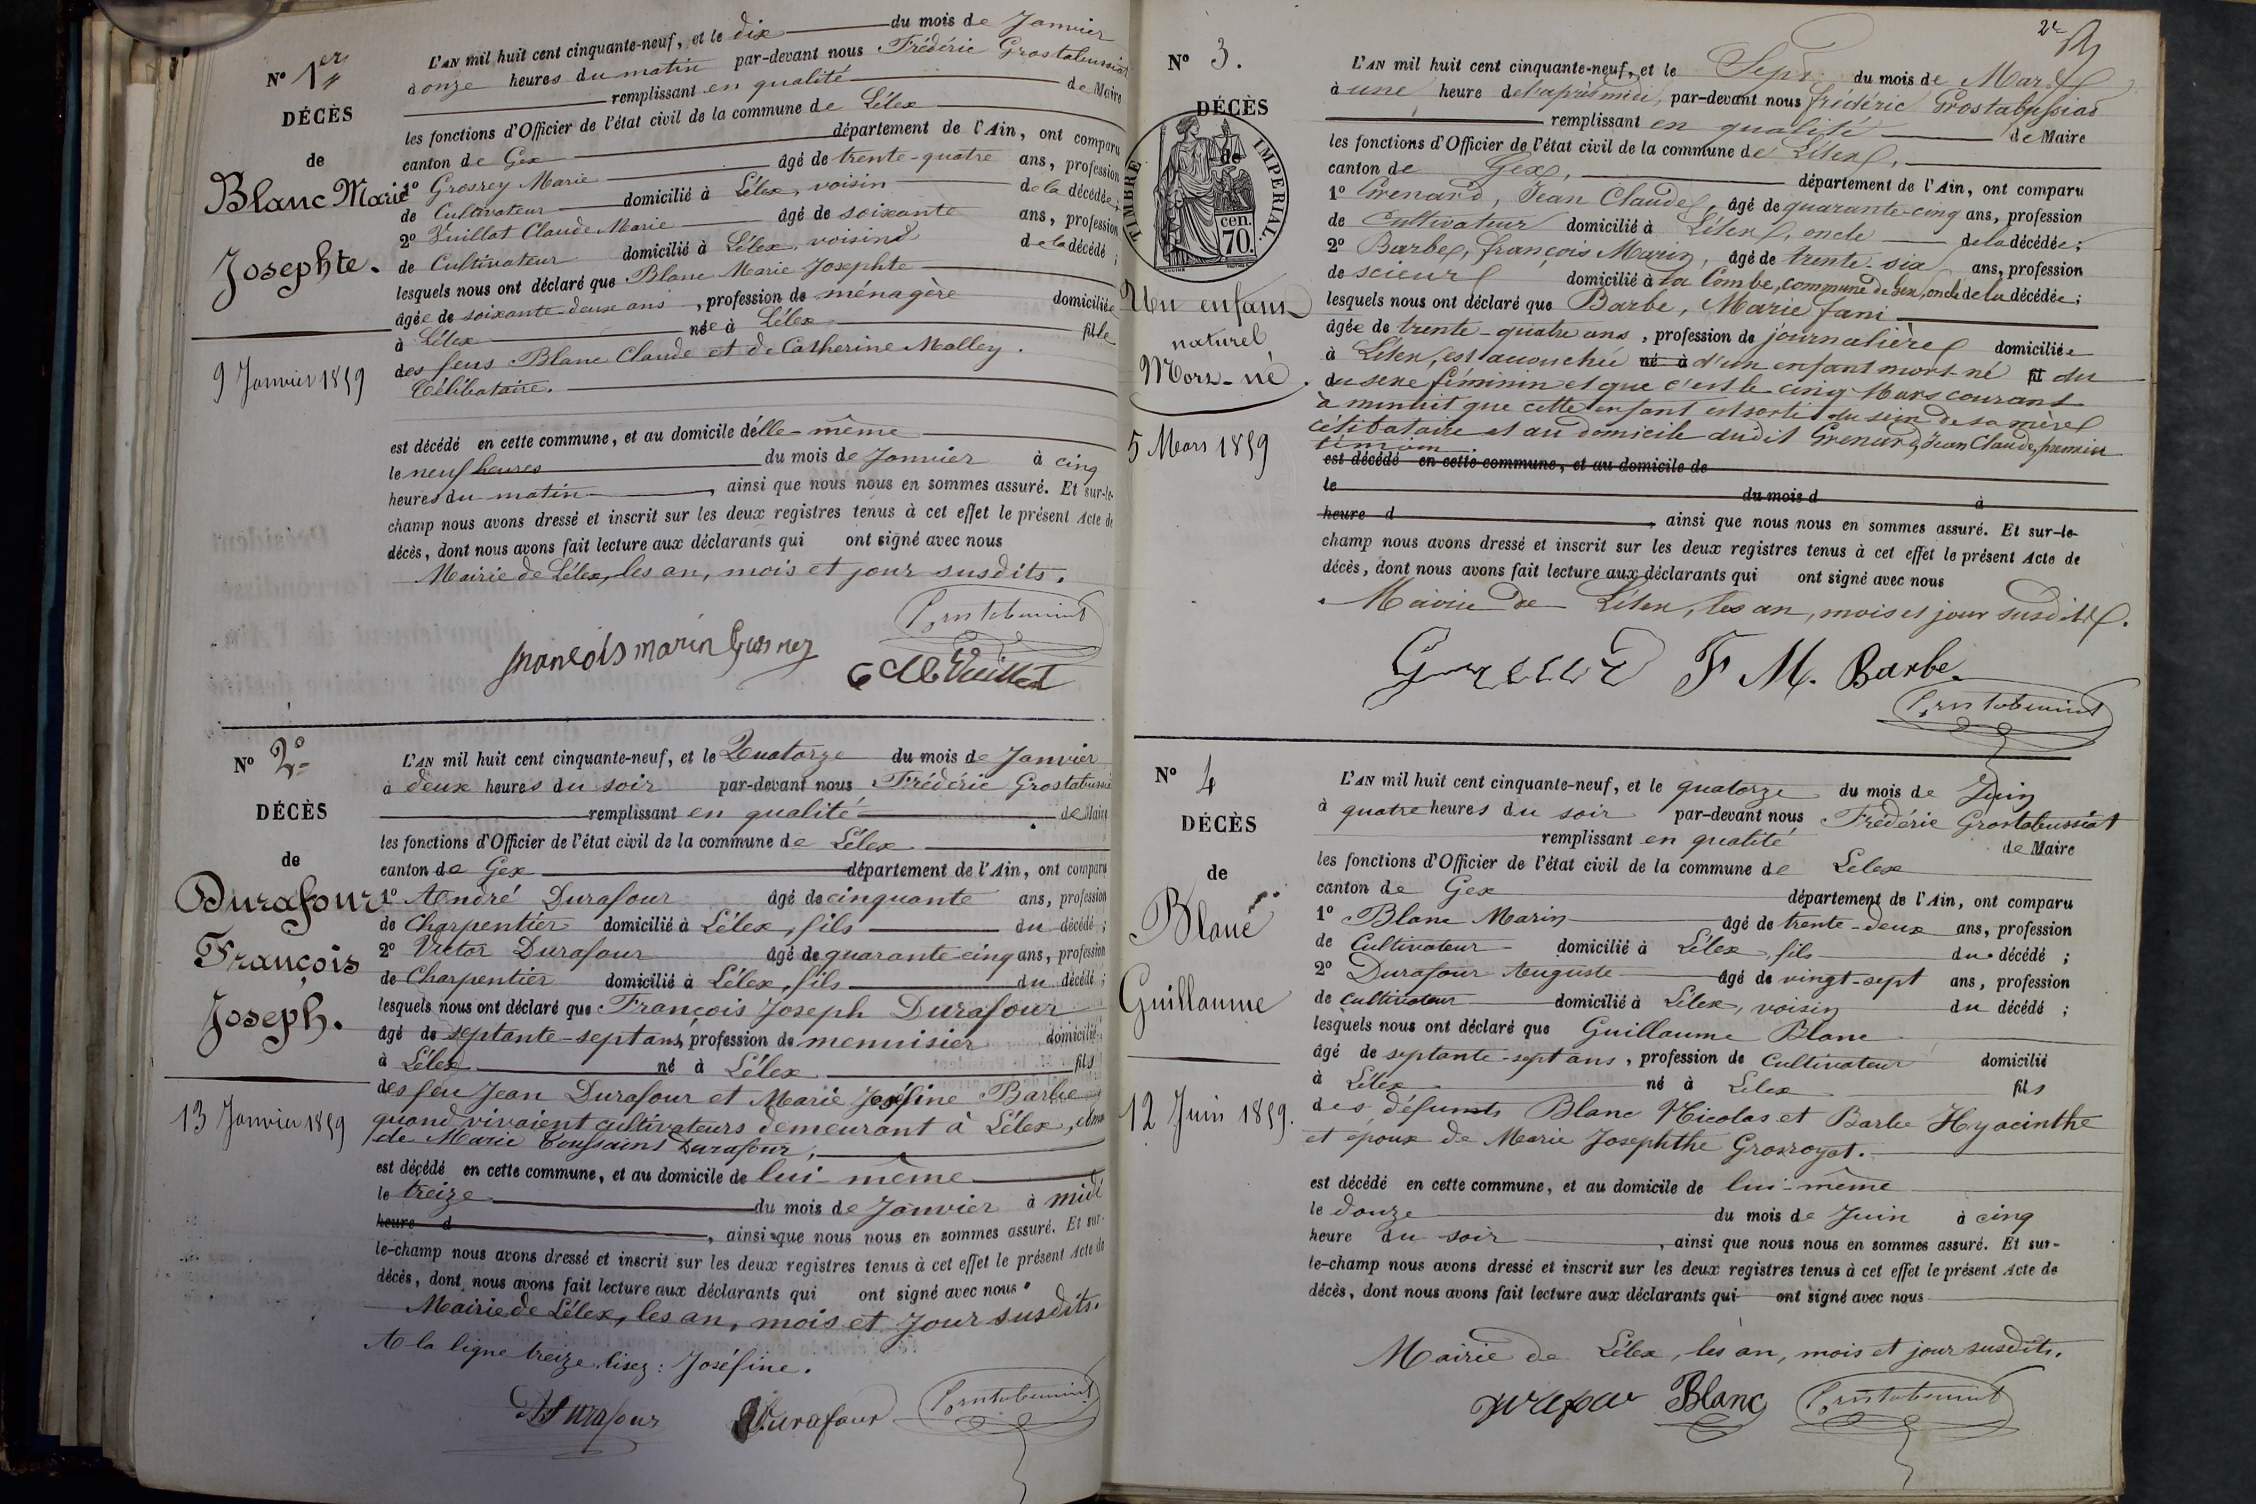 N° 1er
DÉCÈS
de
Blanc Marie
Josephte.
9 Janvier 1859
L'AN mil huit cent cinquante-neuf, et le dix du mois de Janvier
à onze heures du matin par-devant nous Frédéric Grostabussiat
remplissant en qualité de Maire
les fonctions d'Officier de l'état civil de la commune de Lélex
canton de Gex département de l'Ain, ont comparu
1° Grosrey Marie âgé de trente-quatre ans, profession
de Cultivateur domicilié à Lélex, voisin de la décédée;
2° Vuillat Claude Marie âgé de soixante ans, profession
de Cultivateur domicilié à Lélex, voisins de la décédé;
lesquels nous ont déclaré que Blanc Marie Josephte
âgée de soixante-deux ans, profession de ménagère domiciliée
à Lélex née à Lélex fille
des feus Blanc Claude et de Catherine Malley.
Célibataire.
est décédé en cette commune, et au domicile d'elle-même
le neuf heures du mois de Janvier à cinq
heures du matin, ainsi que nous nous en sommes assuré. Et sur-le-
champ nous avons dressé et inscrit sur les deux registres tenus à cet effet le présent Acte de
décès, dont nous avons fait lecture aux déclarants qui ont signé avec nous
Mairie de Lélex, les an, mois et jour susdits.
Grostabussiat
françois marin Grosrey
C M Vuillet
N° 2°
DÉCÈS
de
Durafour
François
Joseph.
13 Janvier 1859
L'AN mil huit cent cinquante-neuf, et le Quatorze du mois de Janvier
à deux heures du soir par-devant nous Frédéric Grostabussiat
remplissant en qualité de Maire
les fonctions d'Officier de l'état civil de la commune de Lélex
canton de Gex département de l'Ain, ont comparu
1° André Durafour âgé de cinquante ans, profession
de Charpentier domicilié à Lélex, fils du décédé;
2° Victor Durafour âgé de quarante-cinq ans, profession
de Charpentier domicilié à Lélex, fils du décédé;
lesquels nous ont déclaré que François Joseph Durafour
âgé de septante-sept ans, profession de menuisier domicilié
à Lélex né à Lélex fils
des feu Jean Durafour et Marie Joséfine Barbe
quand vivaient cultivateurs demeurant à Lélex, époux
de Marie Toussaint Durafour,
est décédé en cette commune, et au domicile de lui-même
le treize du mois de Janvier à midi
heure d, ainsi que nous nous en sommes assuré. Et sur-
le-champ nous avons dressé et inscrit sur les deux registres tenus à cet effet le présent Acte de
décès, dont nous avons fait lecture aux déclarants qui ont signé avec nous
Mairie de Lélex, les an, mois et Jour susdits.
A la ligne treize lisez: Joséfine.
A Durafour V. Durafour Grostabussiat
2e
N° 3.
DÉCÈS
de
TIMBRE IMPERIAL.
cen.
70.
Un enfant
naturel
Mort-né.
5 Mars 1859
L'AN mil huit cent cinquante-neuf, et le Sept du mois de Mars
à une heure de l'après midi, par-devant nous frédéric Grostabussiat
remplissant en qualité de Maire
les fonctions d'Officier de l'état civil de la commune de Lélex,
canton de Gex, département de l'Ain, ont comparu
1° Grenard, Jean Claude, âgé de quarante-cinq ans, profession
de Cultivateur domicilié à Lélex, oncle de la décédée;
2° Barbe, françois Marin, âgé de trente-six ans, profession
de scieur domicilié à la Combe, commune de Gex, oncle de la décédée;
lesquels nous ont déclaré que Barbe, Marie fani
âgée de trente-quatre ans, profession de journalière domiciliée
à Lélex, est accouchée né à d'un enfant mort-né fil du
du sexe féminin et que c'est le cinq Mars courant
à minuit que cette enfant est sorti du sein de sa mère
célibataire et au domicile dudit Grenard, Jean Claude, premier
témoin.
est décédé en cette commune, et au domicile de
le du mois d à
heure d, ainsi que nous nous en sommes assuré. Et sur-le-
champ nous avons dressé et inscrit sur les deux registres tenus à cet effet le présent Acte de
décès, dont nous avons fait lecture aux déclarants qui ont signé avec nous
Mairie de Lélex, les an, mois et jour susdits.
Grenard F. M. Barbe.
Grostabussiat
N° 4
DÉCÈS
de
Blanc
Guillaume
12 Juin 1859.
L'AN mil huit cent cinquante-neuf, et le quatorze du mois de Juin
à quatre heures du soir par-devant nous Frédéric Grostabussiat
remplissant en qualité de Maire
les fonctions d'Officier de l'état civil de la commune de Lelex
canton de Gex département de l'Ain, ont comparu
1° Blanc Marin âgé de trente-deux ans, profession
de Cultivateur domicilié à Lélex, fils du décédé;
2° Durafour Auguste âgé de vingt-sept ans, profession
de cultivateur domicilié à Lélex, voisin du décédé;
lesquels nous ont déclaré que Guillaume Blanc
âgé de septante-sept ans, profession de Cultivateur domicilié
à Lélex né à Lelex fils
des défunts Blanc Nicolas et Barbe Hyacinthe
et époux de Marie Josephthe Grosroyat.
est décédé en cette commune, et au domicile de lui-même
le douze du mois de Juin à cinq
heure du soir, ainsi que nous nous en sommes assuré. Et sur-
le-champ nous avons dressé et inscrit sur les deux registres tenus à cet effet le présent Acte de
décès, dont nous avons fait lecture aux déclarants qui ont signé avec nous
Mairie de Lélex, les an, mois et jour susdits.
Durafour Blanc Grostabussiat